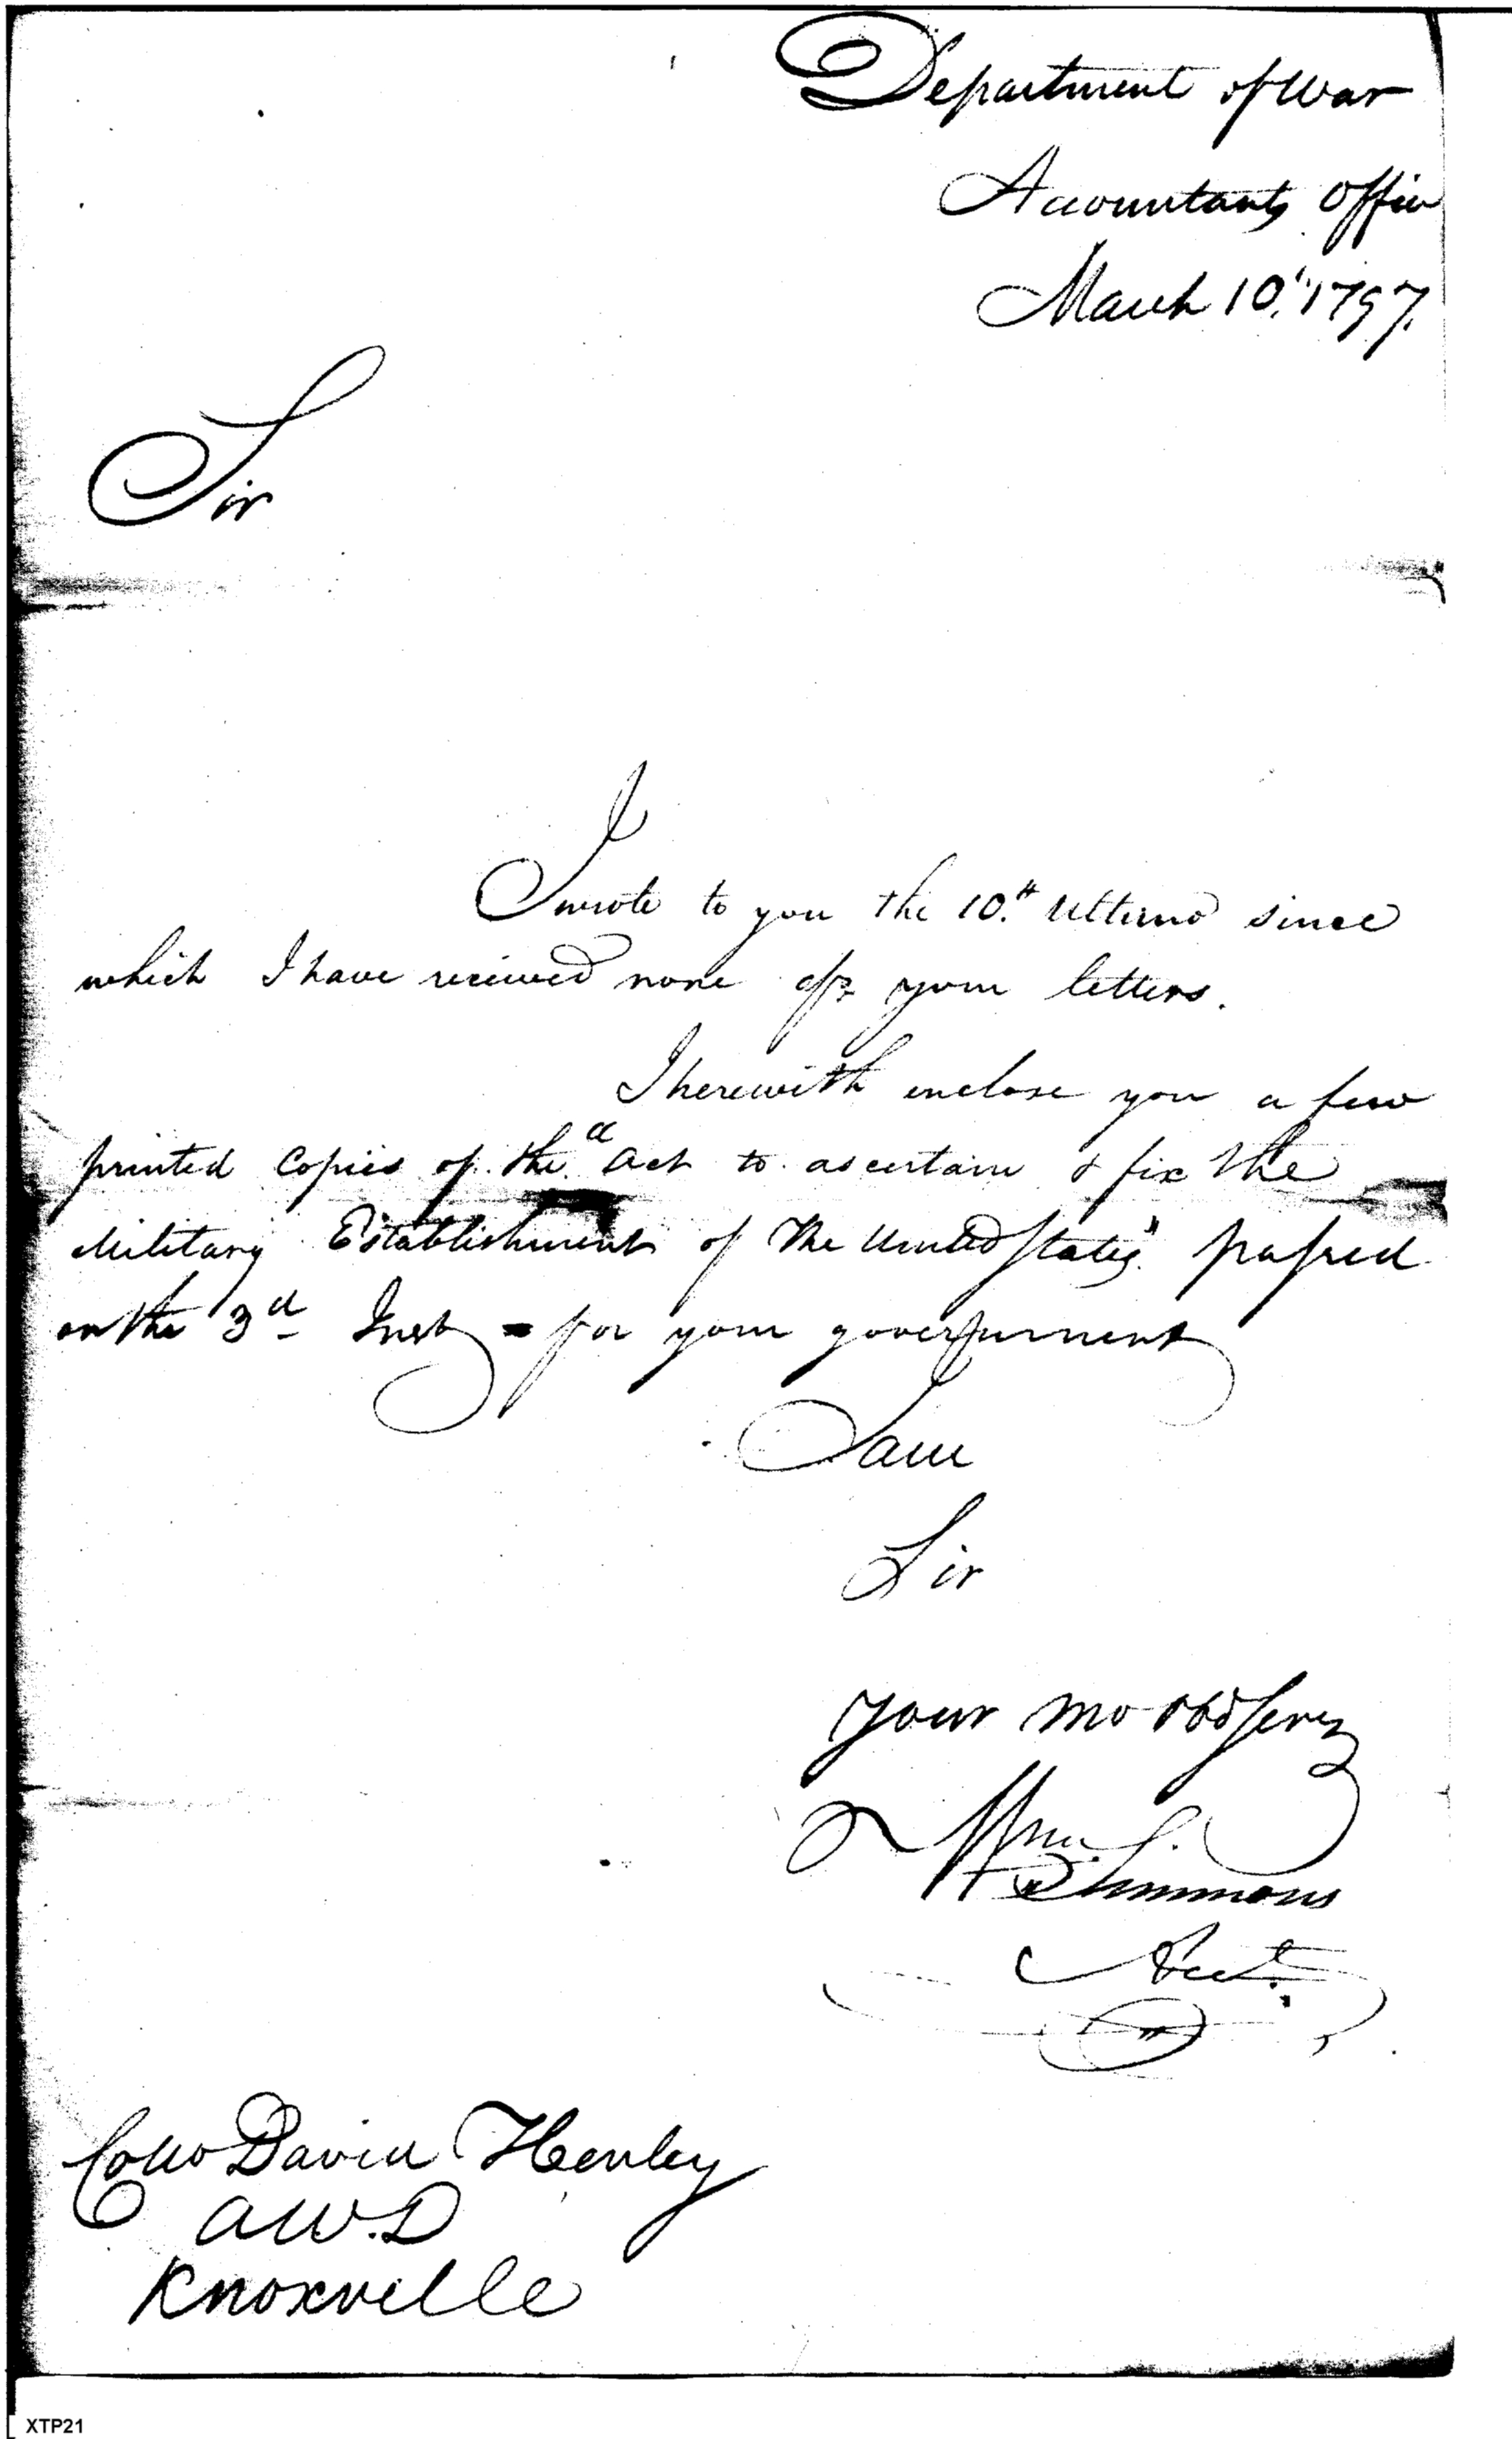 Department of War
Accountants Office
March 10th 1797.
Sir
I wrote to you the 10th Ultimo since
which I have received none of your letters.
I herewith enclose you a few
printed Copies of the "Act to ascertain & fix the
Military Establishment of the United States" passed
on the 3d Inst for your government
I am
Sir
your mo obd Serv
Wm. Simmons
Acct.
Collo David Henley
A W. D
Knoxville
XTP21